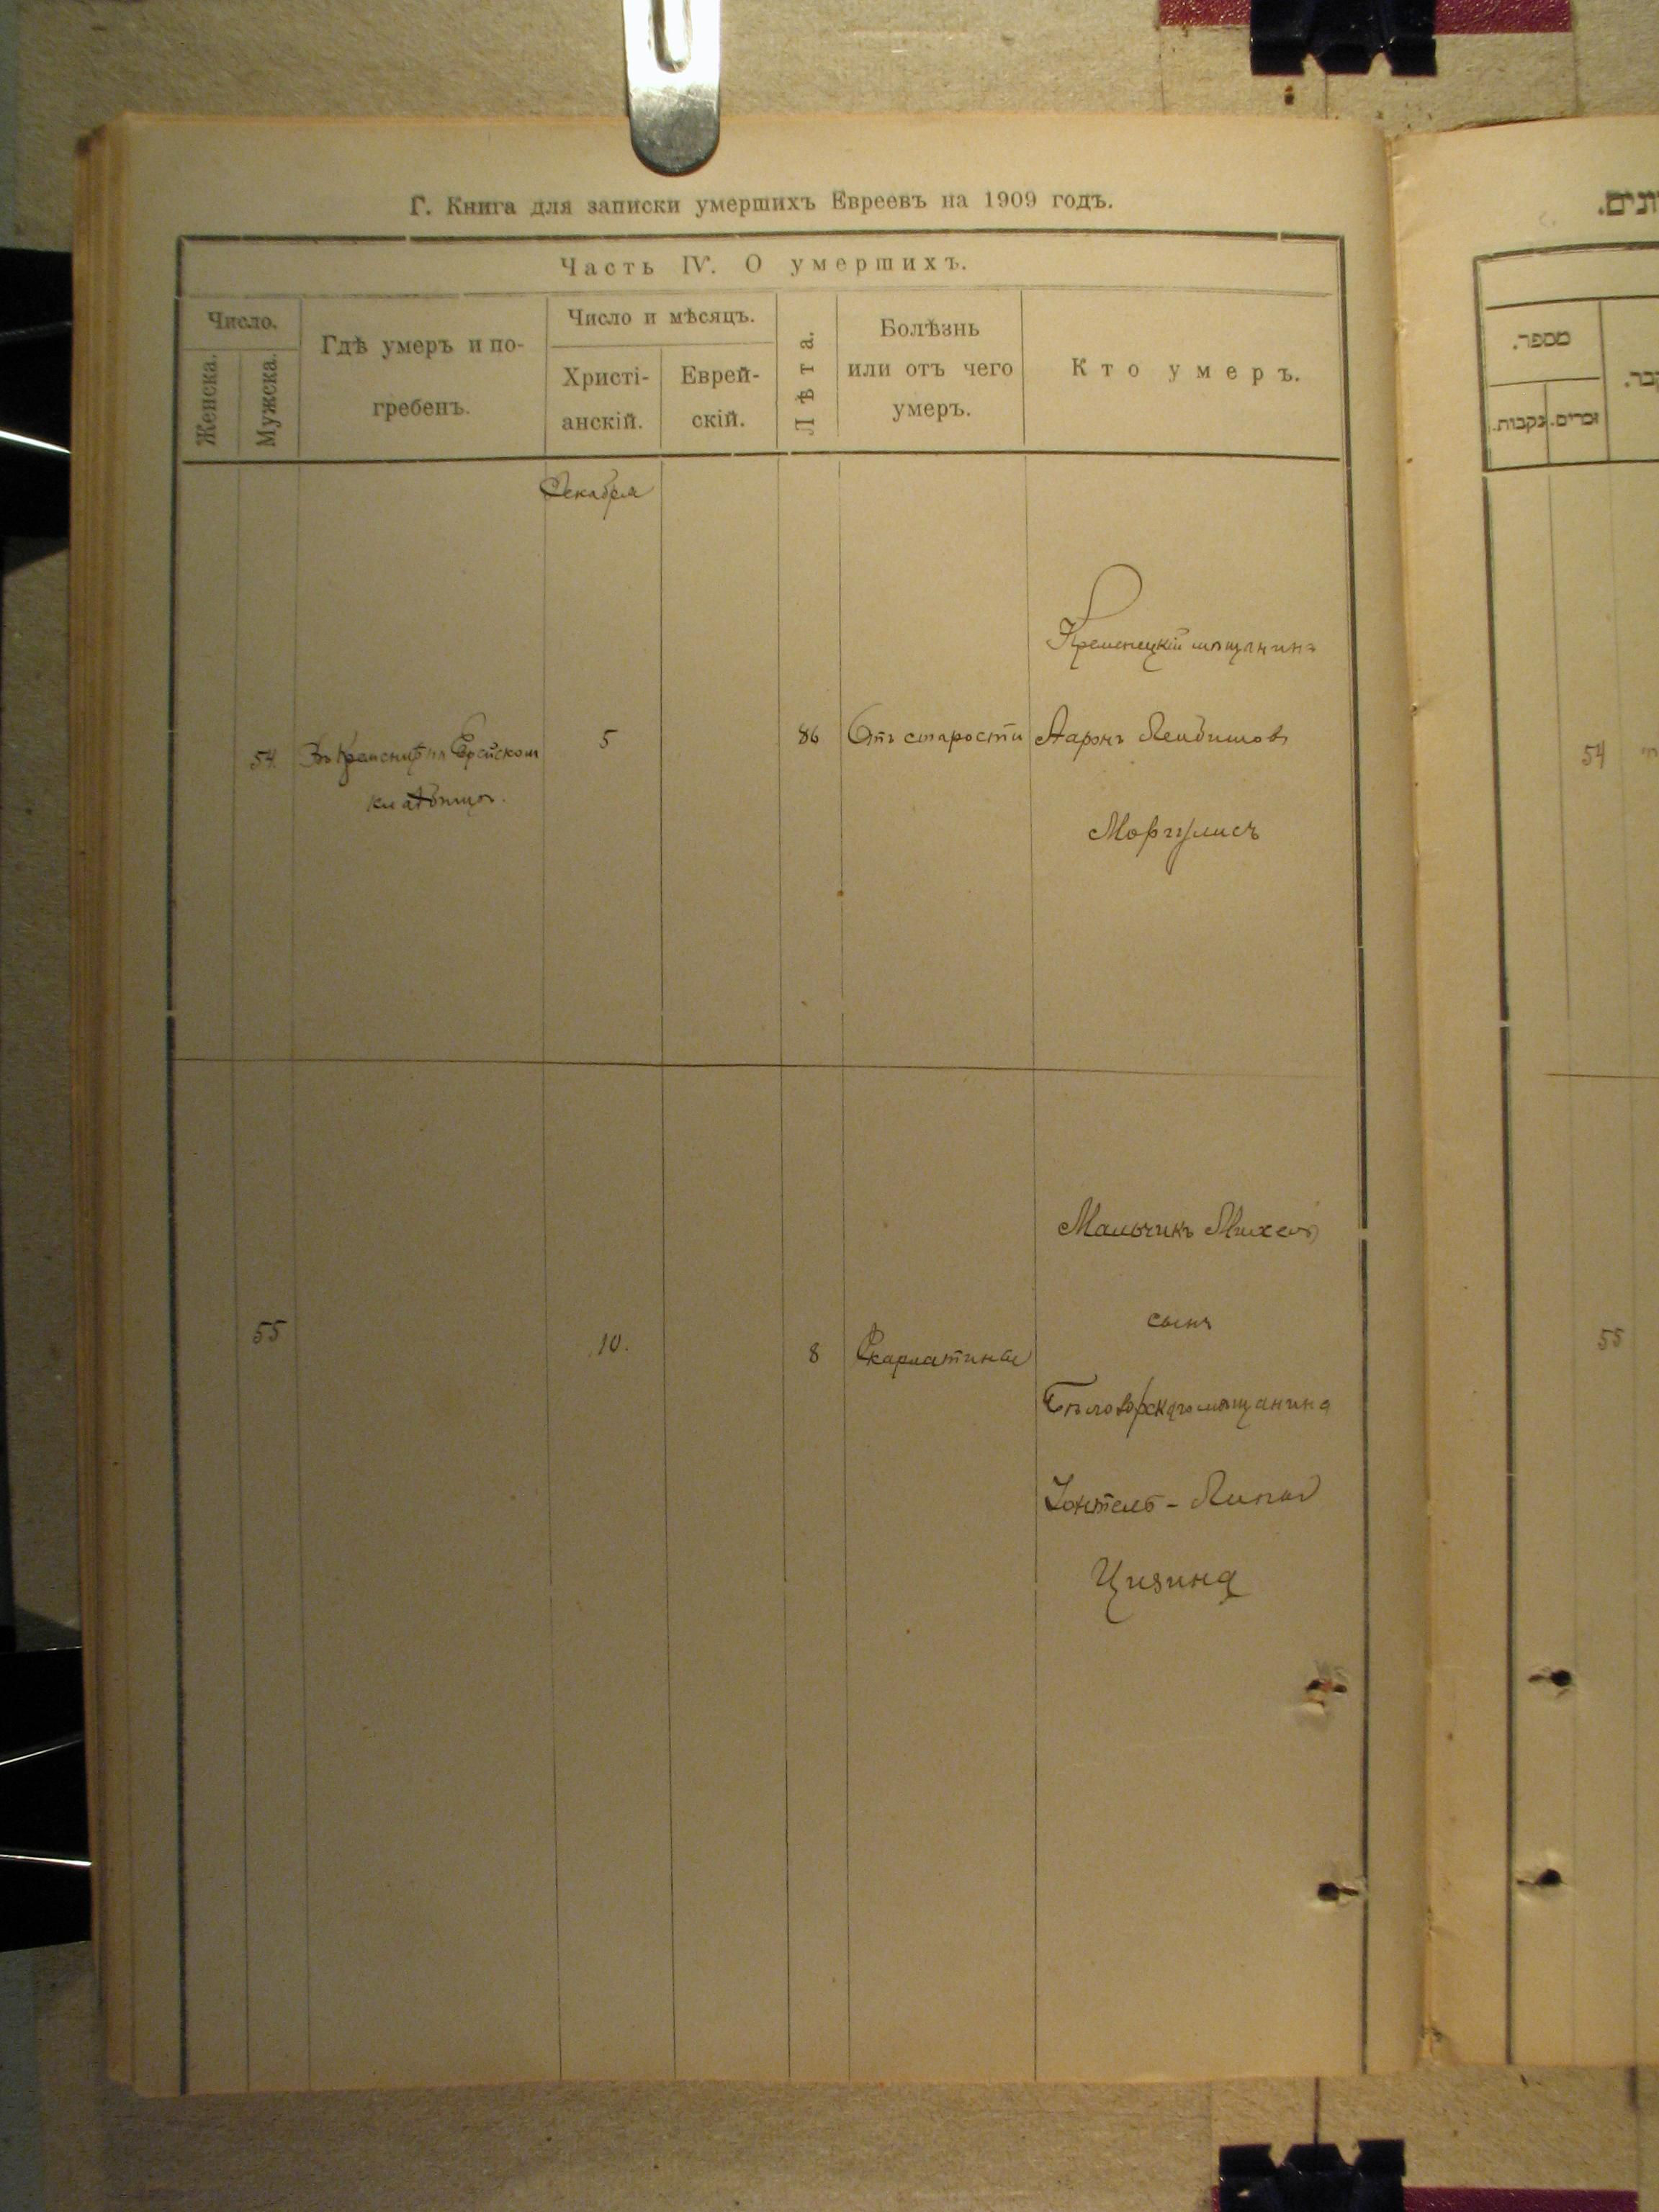 Г. Книга для записки умершихъ Евреевъ на 1909 годъ.
Часть IV. О умершихъ.
Число.
Женска.
Мужска.
Гдѣ умеръ и по-
гребенъ.
Число и мѣсяцъ.
Христі-
анскій.
Еврей-
скій.
Лѣта.
Болѣзнь
или отъ чего
умеръ.
Кто умеръ.
Декабря
Кременецкій мѣщанинъ
54 Въ Кременцѣ на Еврейском 5 86 Отъ старости Ааронъ Лейбишовъ
кладбищѣ.
Моргулисъ
Мальчикъ Михель
сынъ
55 10. 8 Скарлатины
мѣщанина
Липы
Цизина
מספר.
זכרים.
נקבות.
54
55